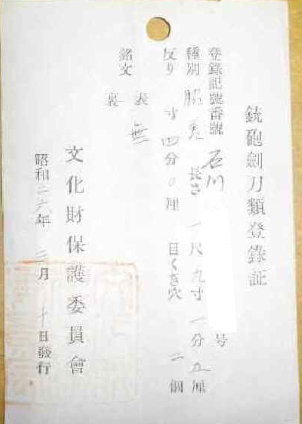 銃砲劍刀類登錄証
登錄記號番號 石川 号
種別 脇差 長さ 一尺九寸一分五厘
反り 寸四分0厘 目くぎ穴 二個
銘文 表 無
裏
文化財保護委員會
昭和二六年 三月 十日發行